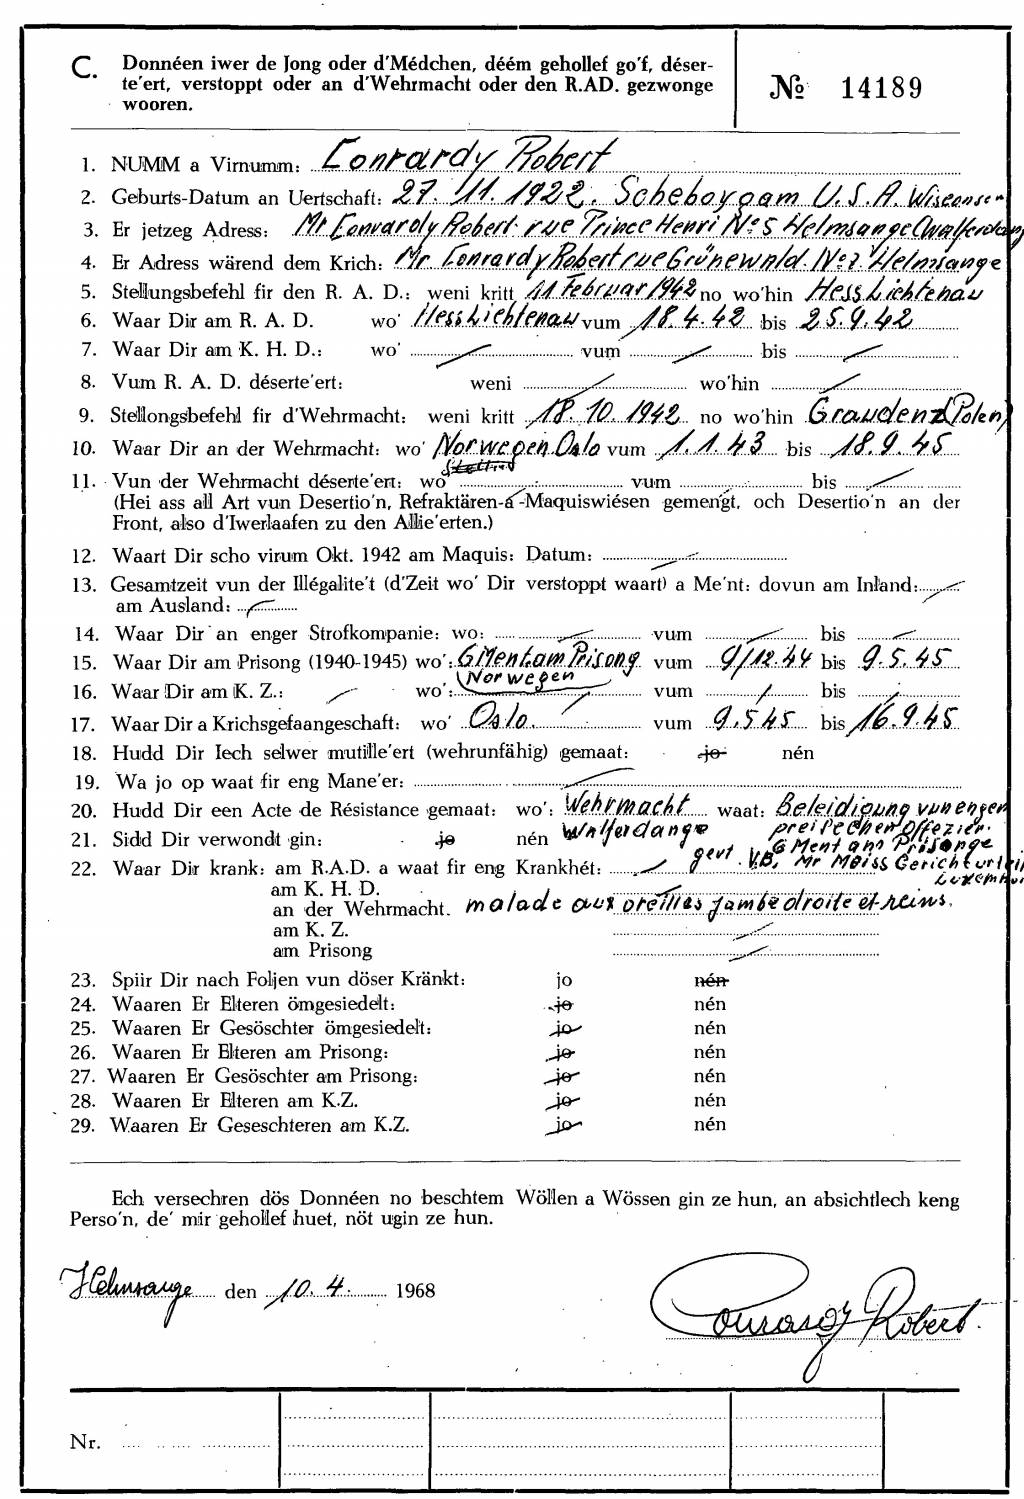 C. Donnéen iwer de Jong oder d'Médchen, déém gehollef go'f, déser-
te'ert, verstoppt oder an d'Wehrmacht oder den R.AD. gezwonge
wooren.
№ 14189
1. NUMM a Virnumm: Conrardy Robert
2. Geburts-Datum an Uertschaft: 27. 11. 1922. Scheboygam U.S.A. Wisconsen
3. Er jetzeg Adress: Mr Conrardy Robert rue Prince Henri No 5 Helmsange (Walferdang
4. Er Adress wärend dem Krich: Mr. Conrardy Robert rue Grünewald. No 7. Helmsange
5. Stellungsbefehl fir den R. A. D.: weni kritt 11 Februar 1942 no wo'hin Hess Lichtenau
6. Waar Dir am R. A. D. wo' Hess Lichtenau vum 18.4.42 bis 25.9.42
7. Waar Dir am K. H. D.: wo' vum bis
8. Vum R. A. D. déserte'ert: weni wo'hin
9. Stellongsbefehl fir d'Wehrmacht: weni kritt 18.10.1942 no wo'hin Graudenz (Polen)
10. Waar Dir an der Wehrmacht: wo' Norwegen Oslo vum 1.1.43 bis 18.9.45
11. Vun der Wehrmacht déserte'ert: wo' vum bis
(Hei ass all Art vun Desertio'n, Refraktären-a -Maquiswiésen gemengt, och Desertio'n an der
Front, also d'Iwerlaafen zu den Allie'erten.)
12. Waart Dir scho virum Okt. 1942 am Maquis: Datum:
13. Gesamtzeit vun der Illégalite't (d'Zeit wo' Dir verstoppt waart) a Me'nt: dovun am Inland:
am Ausland:
14. Waar Dir an enger Strofkompanie: wo: vum bis
15. Waar Dir am Prisong (1940-1945) wo': 6 Ment am Prisong vum 9/12.44 bis 9.5.45
Norwegen
16. Waar Dir am K. Z.: wo': vum bis
17. Waar Dir a Krichsgefaangeschaft: wo' Oslo. vum 9.5 45 bis 16.9.45
18. Hudd Dir Iech selwer mutille'ert (wehrunfähig) gemaat: jo nén
19. Wa jo op waat fir eng Mane'er:
20. Hudd Dir een Acte de Résistance gemaat: wo': Wehrmacht waat: Beleidigung vun engen
21. Sidd Dir verwondt gin: jo nén Walferdange preisechen Offezier.
6 Ment am Prisonge
22. Waar Dir krank: am R.A.D. a waat fir eng Krankhét: V.B. Mr Moiss
am K. H. D.
an der Wehrmacht. malade aux oreilles jambe droite et reins.
am K. Z.
am Prisong
23. Spiir Dir nach Foljen vun döser Kränkt: jo nén
24. Waaren Er Elteren ömgesiedelt: jo nén
25. Waaren Er Gesöschter ömgesiedelt: jo nén
26. Waaren Er Elteren am Prisong: jo nén
27. Waaren Er Gesöschter am Prisong: jo nén
28. Waaren Er Elteren am K.Z. jo nén
29. Waaren Er Geseschteren am K.Z. jo nén
Ech versechren dös Donnéen no beschtem Wöllen a Wössen gin ze hun, an absichtlech keng
Perso'n, de' mir gehollef huet, nöt ugin ze hun.
Helmsange den 10.4. 1968
Conrardy Robert.
Nr.